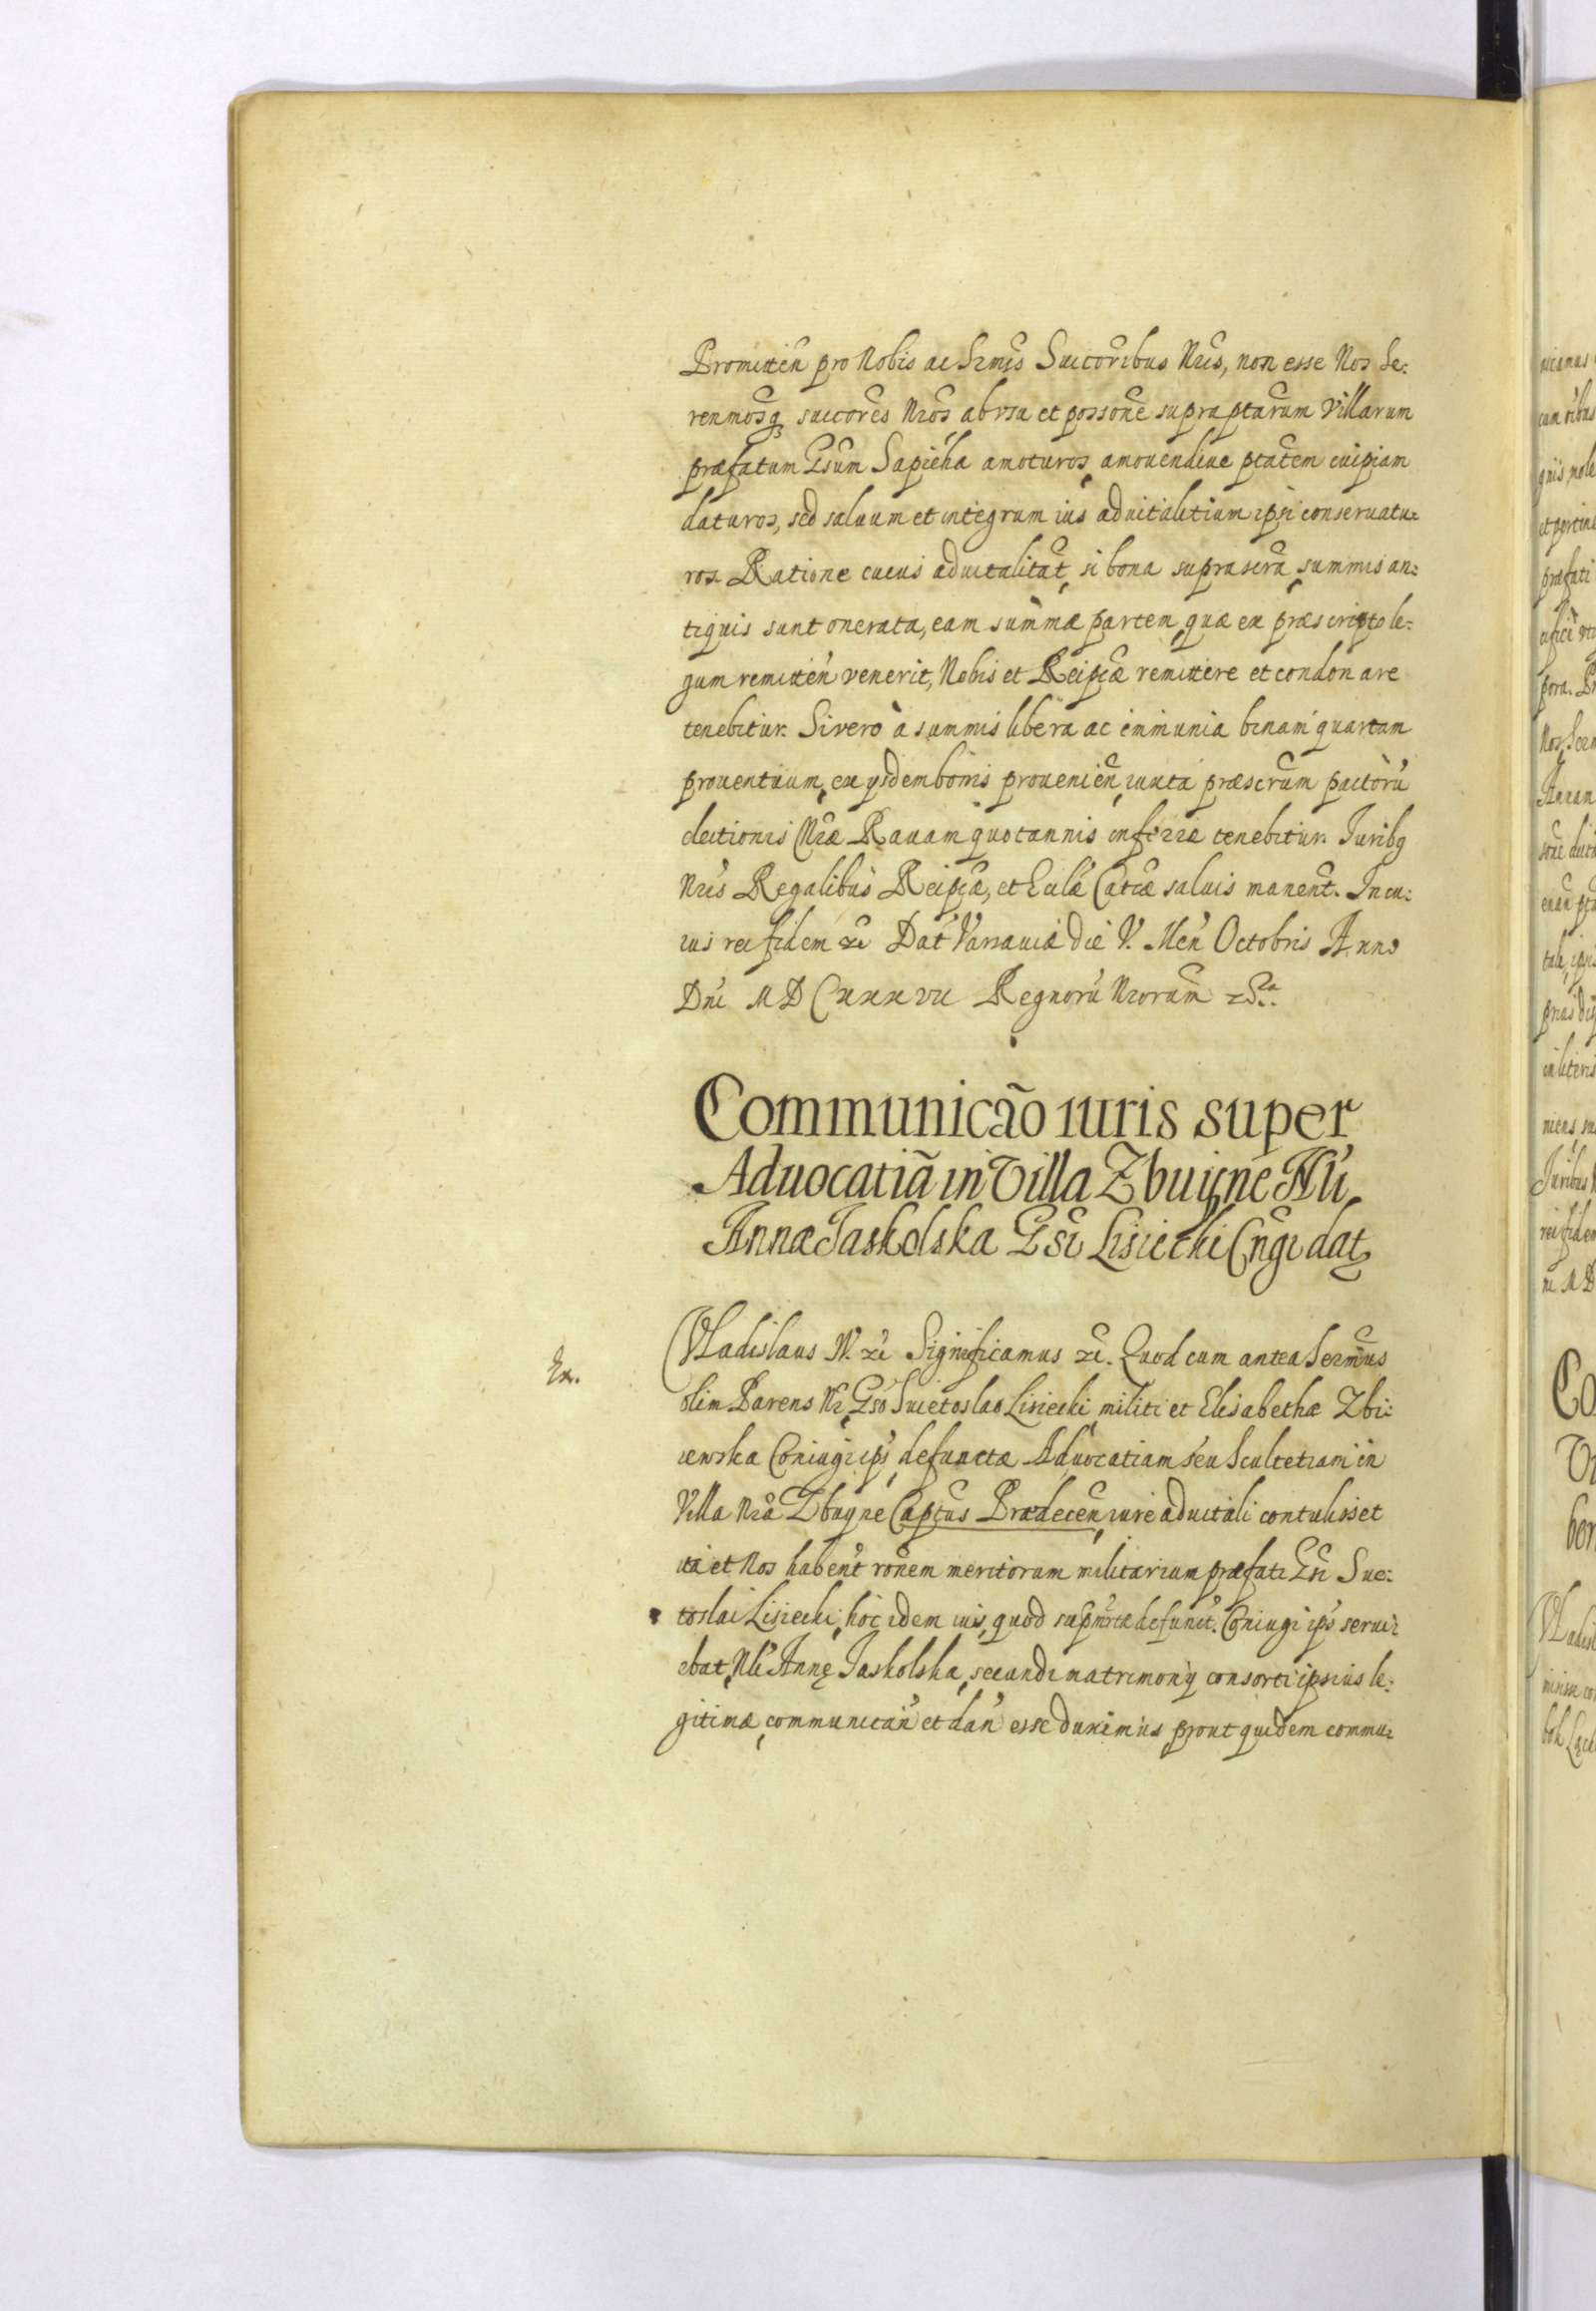 Promitteñ pro Nobis ac Srmis Succoribus Nris, non esse Nos Se:
renmosq succores Nros ab vsu et possone supraptarum Villarum
præfatum Gsum Sapieha amoturos, amouendiue ptatem cuipiam
daturos, sed saluum et integrum ius aduitalitium ipsi conseruatu:
ros. Ratione cuius aduitalitat, si bona suprascra, summis an:
tiquis sunt onerata, eam summæ partem, quæ ex præscripto le:
gum remitteñ venerit, Nobis et Reipcæ remittere et condonare
tenebitur. Si vero à summis libera ac immunia binam quartam
prouentuum, ex ysdem bonis prouenieñ, iuxta præscrum pactorũ
electionis Nræ Rauam quotannis inferre tenebitur. Juribq
Nris Regalibus Reipcæ, et Eccliæ Catcæ saluis manent. In cu:
ius rei fidem etc Dat Varsauiæ die V. Men Octobris Anno
Dni MDCxxxvii Regnorũ Nrorum
Communicão iuris super
Aduocatiã in Villa Zbuyne Nli
Annæ Jaskolska Gsi Lisiecki Cngi dat
Vladislaus IV. etc Significamus etc. Quod cum antea Sermus
olim Parens Nr, Gso Suietoslao Lisiecki, militi et Elisabethæ Zbi:
iewska Coniugi ips, defunctæ Aduocatiam seu Scultetiam in
Villa Nra Zbuyne Captus Prædeceñ, iure aduitali contulisset
ita et Nos habent ronem meritorum militarium præfati Gsi Sue:
toslai Lisiecki, hoc idem ius, quod supmtæ defunct. Coniugi ips serui:
ebat, Nli Annę Jaskolska, secundi matrimonÿ consorti ipsius le:
gitimæ, communicañ et dañ esse duximus prout quidem commu:
Ex.